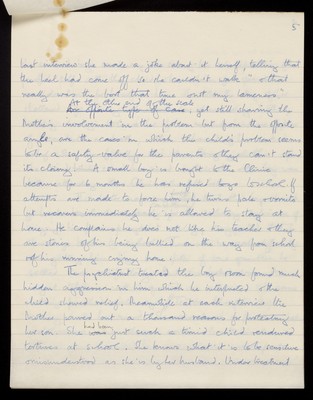 5
last interview she made a joke about it herself, telling that
the heel had come off so she couldn't walk "& that
really was the boot that time on my
At the other end of the scale
An opposite type of case, yet still showing the
Mother's involvement in the problem but from the opposite
angle, are the cases in which the child's problem seems
to be a safety-valve for the parents & they can't stand
its closing. A small boy is brought to the Clinic
because for 6 months he has refused to go to school. If
attempts are made to force him, he turns pale & vomits
but recovers immediately he is allowed to stay at
home. He complains he does not like his teacher & there
are stories of his being bullied on the way from school
& of his running crying home.
The psychiatrist treated the boy & soon found much
hidden aggression in him which he interpreted & the
child showed relief. Meanwhile at each interview the
Mother poured out a thousand reasons for protecting
her son. She had been just such a timid child & endured
tortures at school. She knows what it is to be sensitive
& misunderstood as she is by her husband. Under treatment